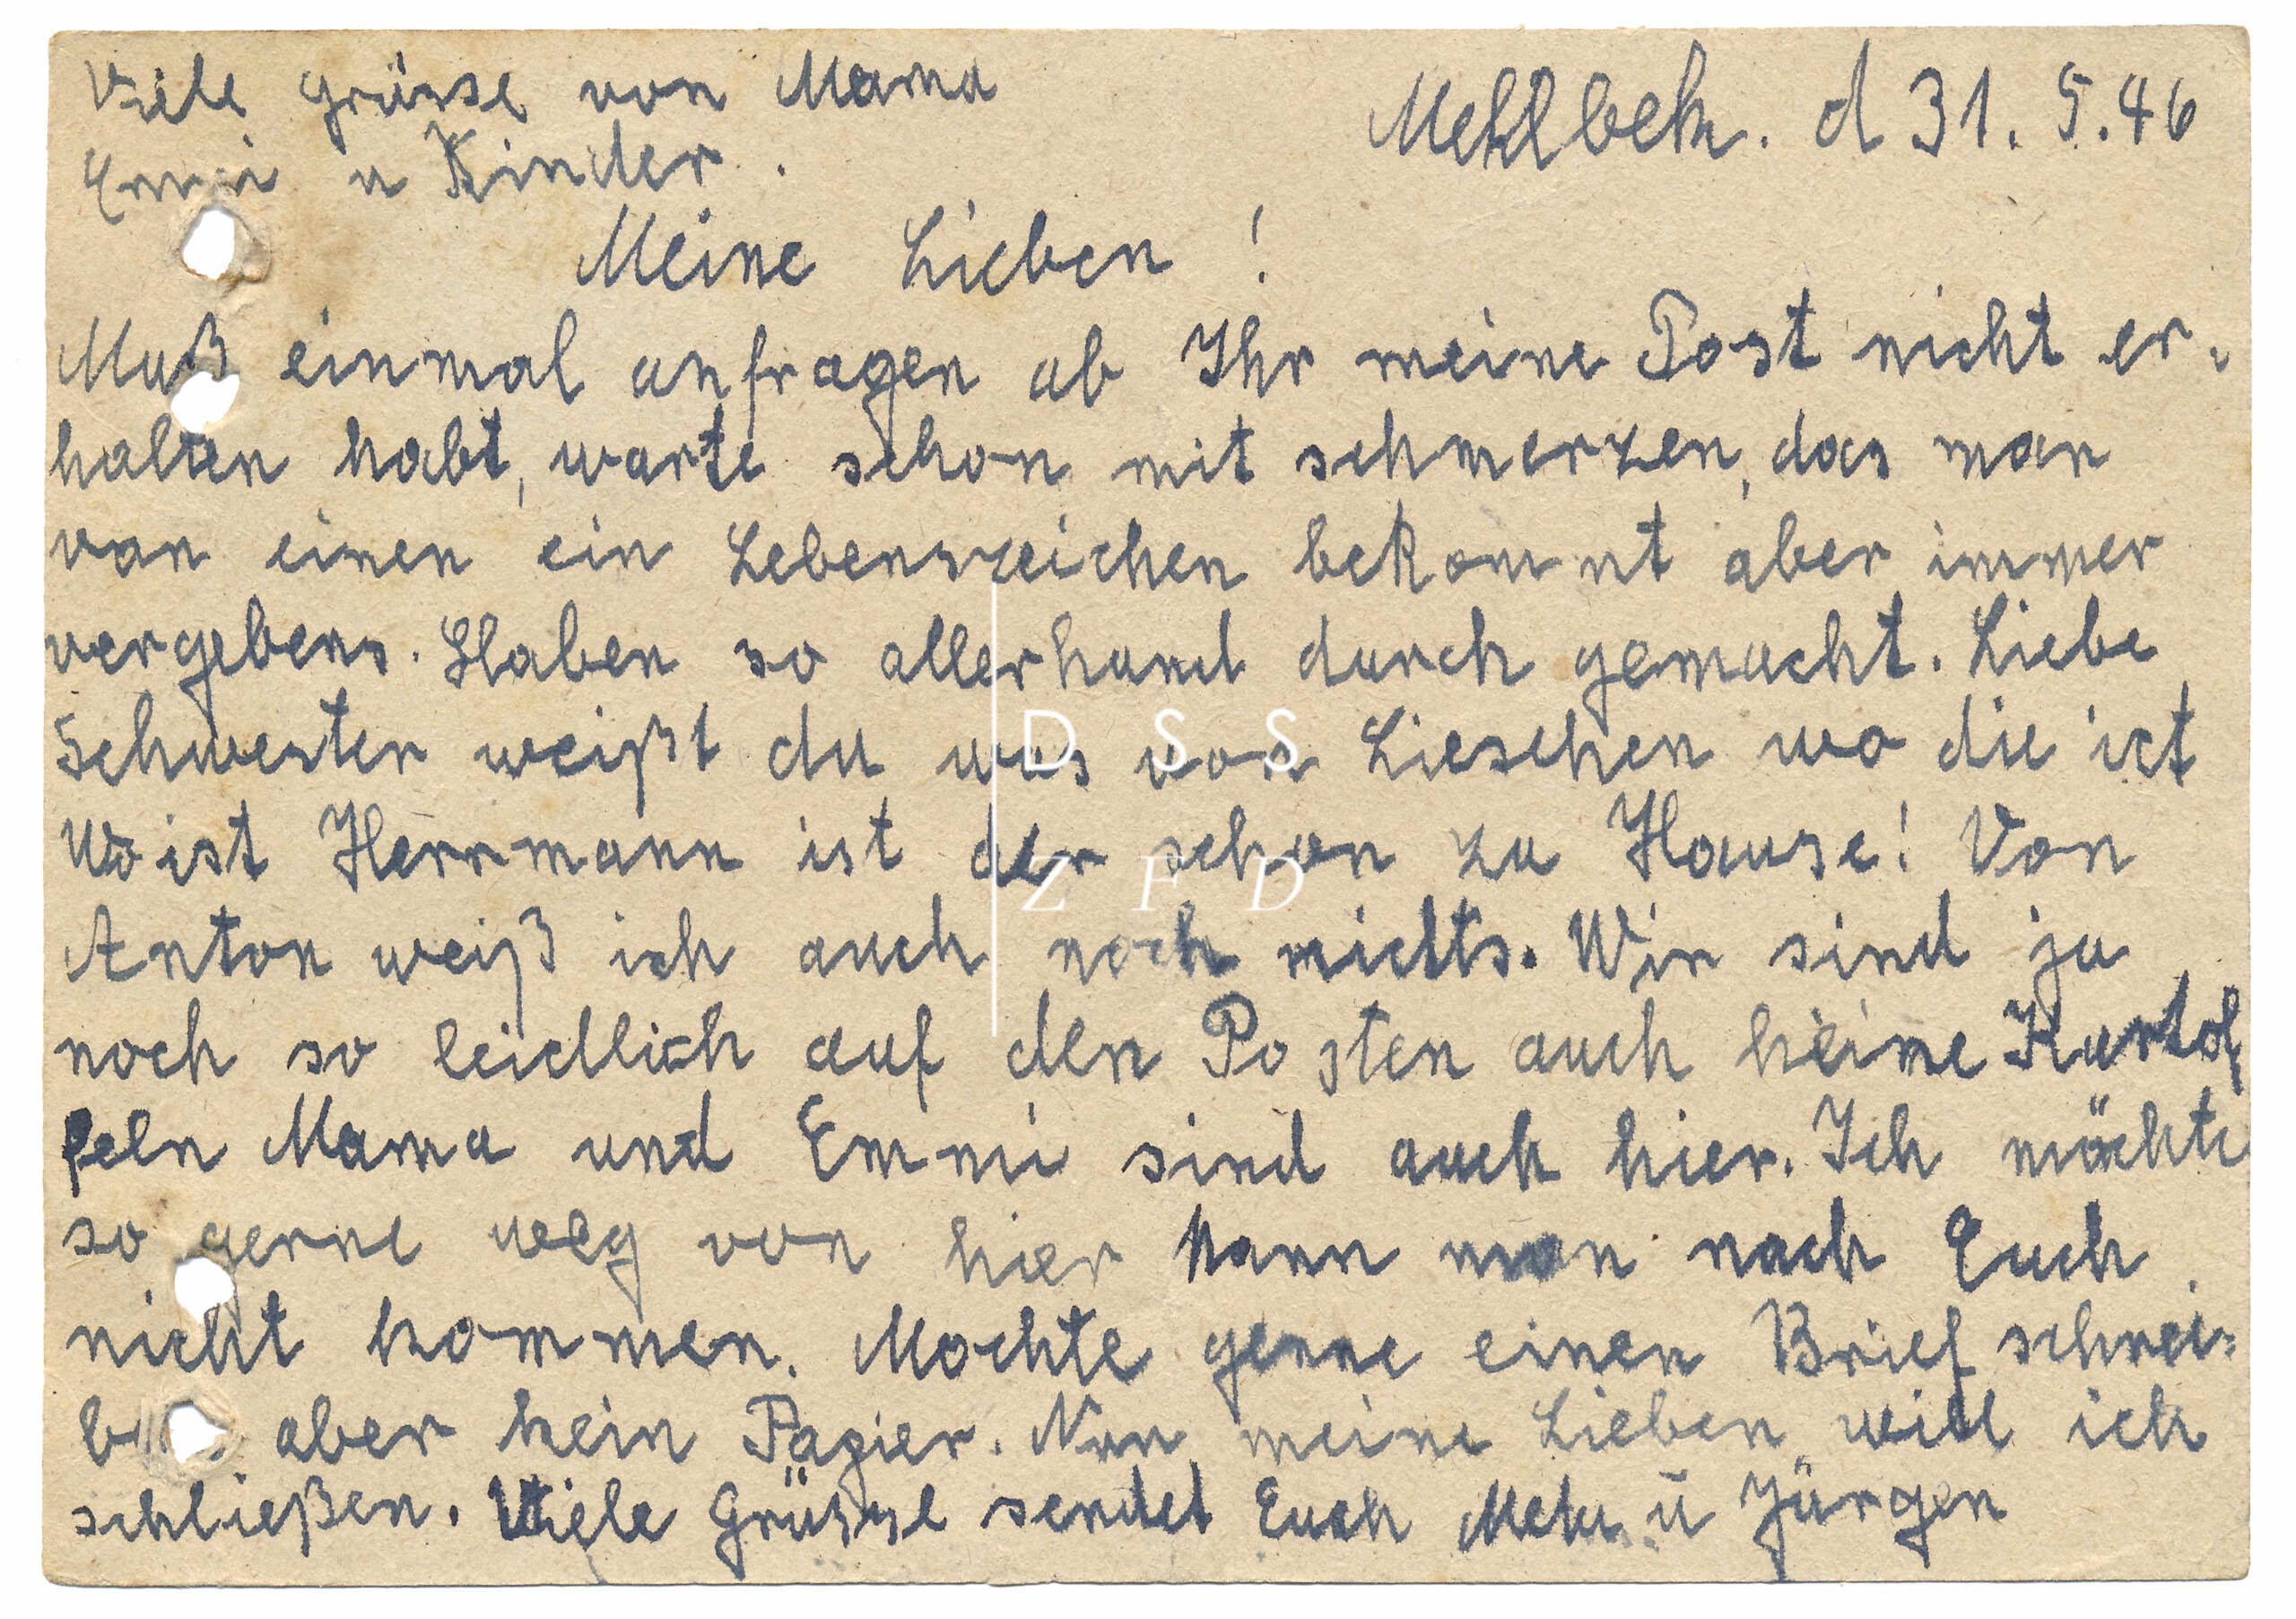 Viele Grüsse von Mama
Emmi u Kinder.
Mehlbek. d 31. 5. 46
Meine Lieben!
Muß einmal anfragen ob Ihr meine Post nicht er-
halten habt, warte schon mit schmerzen, das man
von einen ein Lebenszeichen bekommt aber immer
vergebens. Haben so allerhand durch gemacht. Liebe
Schwester weißt du was von Lieschen wo die ist
Wo ist Herrmann ist der schon zu Hause! Von
Anton weiß ich auch noch nichts. Wir sind ja
noch so leidlich auf den Posten auch keine Kartof
feln Mama und Emmi sind auch hier. Ich möchte
so gerne weg von hier kann man nach Euch
nicht kommen. Mochte gerne einen Brief schrei-
aber kein Papier. Nun meine Lieben will ich
schließen. Viele Grüsse sendet Euch Meta u Jürgen
D S S
Z F D